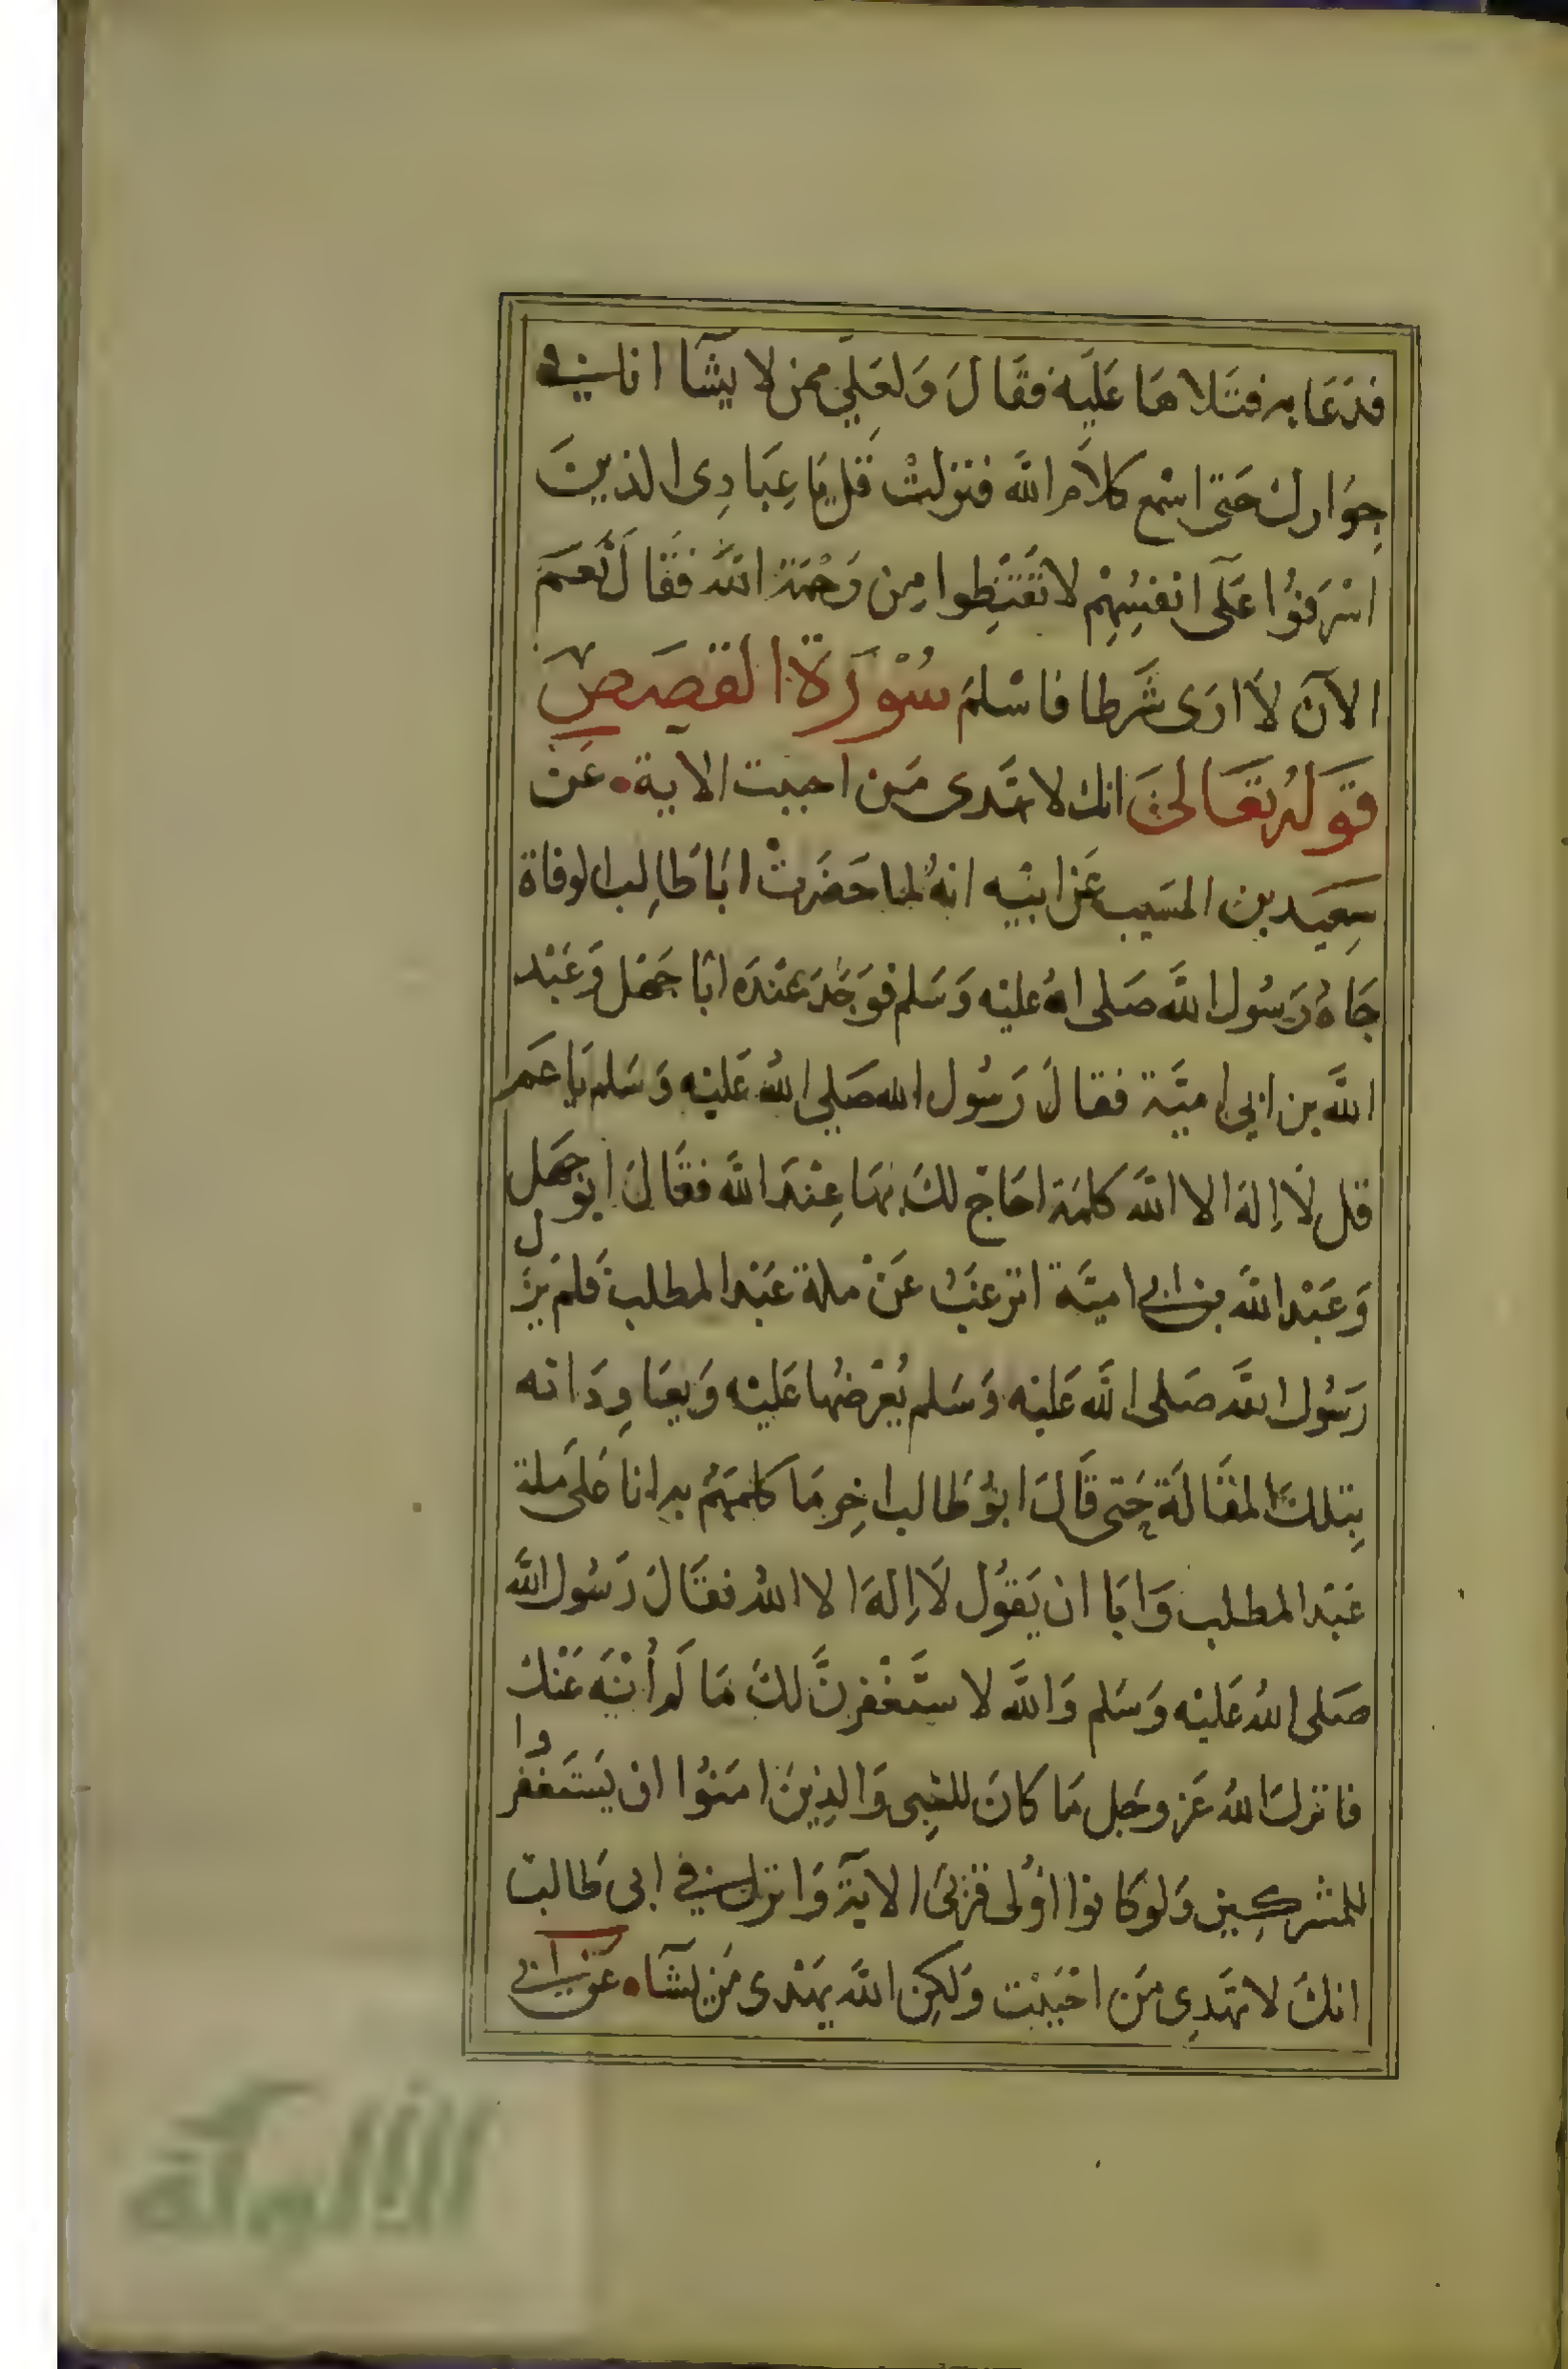 فدَعَا به فتَلاهَا عَلَيْه فقَالَ وَلعَلِّي ممن لا يشآ انا في
جوَارك حَتى اسْمع كلاَم الله فنزلتْ قل يَا عِبَادِى الذينَ
اسْرَفوُا عَلَى انفسِهِمْ لا تقنَطوا مِن رَحْمَة الله فقَالَ نعَم
الآن لاَ ارَى شَرطا فاسْلمَ سُوْرَة القصَصِ
قوَلهُ تعَالىَ انك لا تهَدى مَن احببت الاية عَن
سَعِيَد بن المسَيب عَن ابيْه انهُ لما حَضَرتْ ابَا طَالِب الوفاة
جَاهُ رَسُول الله صَلى الله عليْه وَسَلم فوَجَدَ عنْدَه ابَا جَهْل وَعَبْد
الله بن ابي اميَّة فقالَ رَسُول الله صَلي اللهُ عَليْه وَسَلم يَا عَم
قل لاَ اِلهَ الا الله كلمَة احَاج لكَ بهَا عِنْدَ الله فقَالَ ابو جَهَل
وَعَبْد الله بن ابي اميَّة اترعَبُ عَنْ ملة عَبْد المطلب فَلم يزَل
رَسُول الله صَلى الله عَليْه وَسَلم يُعْرضُها عَليْه وَيعَاوِدَانه
بِتلكَ المقَالَة حَتى قَالَ ابوُ طَالب اخِر مَا كلمَهُم به انا عَلَى ملة
عَبْد المطلب وَابَا ان يَقوُل لاَ اِلهَ الا اللهُ فقَالَ رَسُول الله
صَلى اللهُ عَليْه وَسَلم وَالله لاستَغْفرنَّ لكَ مَا لَم أُنْهَ عَنْك
فانزلَ اللهُ عَز وجَل مَا كانَ للنبِى وَالذِينَ امَنوُا ان يَستَغفرُوا
للمشركِين وَلوكَانوا اوُلى قرْبىَ الايَة وَانزل في ابى طَالب
انكَ لا تهَدِى مَن احْبَبْت وَلكِن الله يهَدى مَن يشَآء عَن ابي
الألوكة